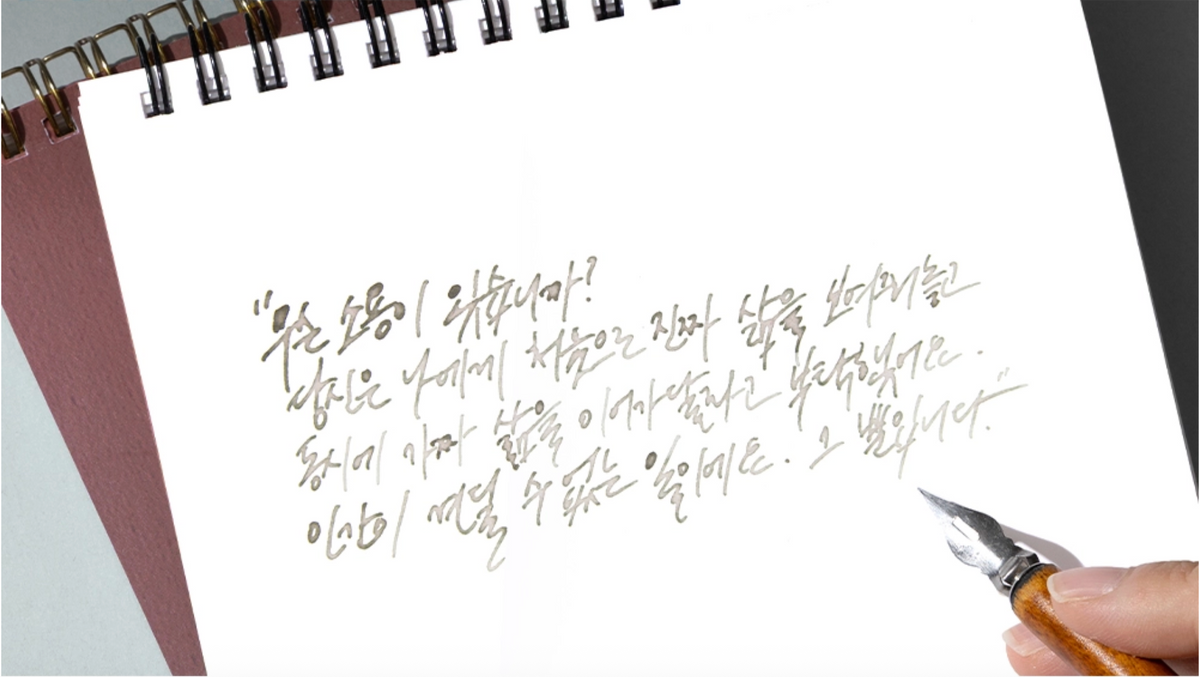 "무슨 소용이 있습니까?
당신은 나에게 처음으로 진짜 삶을 보여줘놓고
동시에 가짜 삶을 이어가달라고 부탁했어요.
인간이 견딜 수 없는 일이에요. 그 뿐입니다."